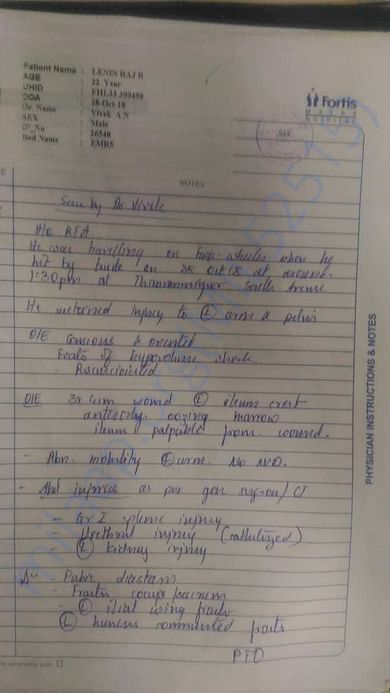 Patient Name : LENIN RAJ R
AGE : 22 Year
UHID : FHL31.390450
DOA : 28-Oct-18
Dr. Name : Vivek A N
SEX : Male
IP_No : 26540
Bed Name : EMR5
Fortis
MALAR
HOSPITAL
NOTES
Seen by Dr Vivek
H/o RTA
He was travelling on two wheeler when he
hit by truck on 28 Oct 18 at around
1:30pm at Thiruvanmiyur South Avenue
He sustained injury to (L) arm & pelvis
O/E concious & oriented
of hypovolumic shock
- Resuscicitated
O/E 3x4cm wound (L) ileum crest
anteriorly. oozing marrow
ileum palpable from wound.
- Abn. mobility (L) arm. No
- Abd injuries as per gen surgeon/CT
- Gr I splenic injury
- Urethral injury (cathetized)
- (L) kidney injury
Pubic diastasis
-
- (L) iliac wing
(L) humerus communited
PTO
PHYSICIAN INSTRUCTIONS & NOTES